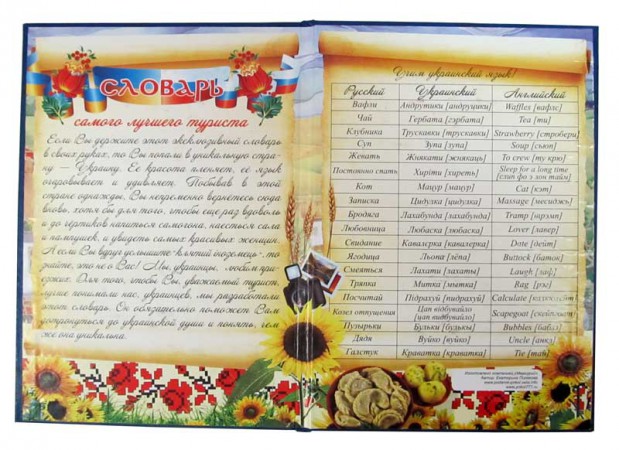 СЛОВАРЬ
самого лучшего туриста
Если Вы держите этот эксклюзивный словарь
в своих руках, то Вы попали в уникальную стра-
ну — Украину. Ее красота пленяет, ее язык
очаровывает и удивляет. Побывав в этой
стране однажды, Вы непременно вернётесь сюда
вновь, хотя бы для того, чтобы еще раз вдоволь
и до чёртиков напиться самогона, наесться сала
и пампушек, и увидеть самых красивых женщин.
А если Вы вдруг услышите "клятий іноземець", то
знайте, это не о Вас! Мы, украинцы, любим при-
езжих. Для того, чтобы Вы, уважаемый турист,
лучше понимали нас, украинцев, мы разработали
этот словарь. Он обязательно поможет Вам
дотронуться до украинской души и понять, чем
же она уникальна.
Учим украинский язык!
Русский Украинский Английский
Вафли Андрутики [андрушики] Waffles [вафлс]
Чай Гербата [гэрбата] Tea [ти]
Клубника Трускавки [трускавки] Strawberry [стробери]
Суп Зупа [зупа] Soup [сьюп]
Жевать Жвякати [жвякаць] To crew [ту крю]
Постоянно спать Хиріти [хиреть] Sleep for a long time [слип фо э лон тайм]
Кот Мацур [мацур] Cat [кэт]
Записка Цидулка [цидулка] Massage [месиджь]
Бродяга Лахабунда [лахабунда] Tramp [трэмп]
Любовница Любаска [любаска] Lover [лавер]
Свидание Кавалєрка [кавалерка] Date [дейт]
Ягодица Льопа [лёпа] Buttock [баток]
Смеяться Лахати [лахаты] Laugh [лаф]
Тряпка Митка [мытка] Rag [рэг]
Посчитай Підрахуй [пидрахуй] Calculate
Козел отпущения Цап відбувайло [цап видбувайло] Scapegoat
Пузырьки Бульки [бульки] Bubbles [баблз]
Дядя Вуйко [вуйко] Uncle [анкл]
Галстук Краватка [краватка] Tie [тай]